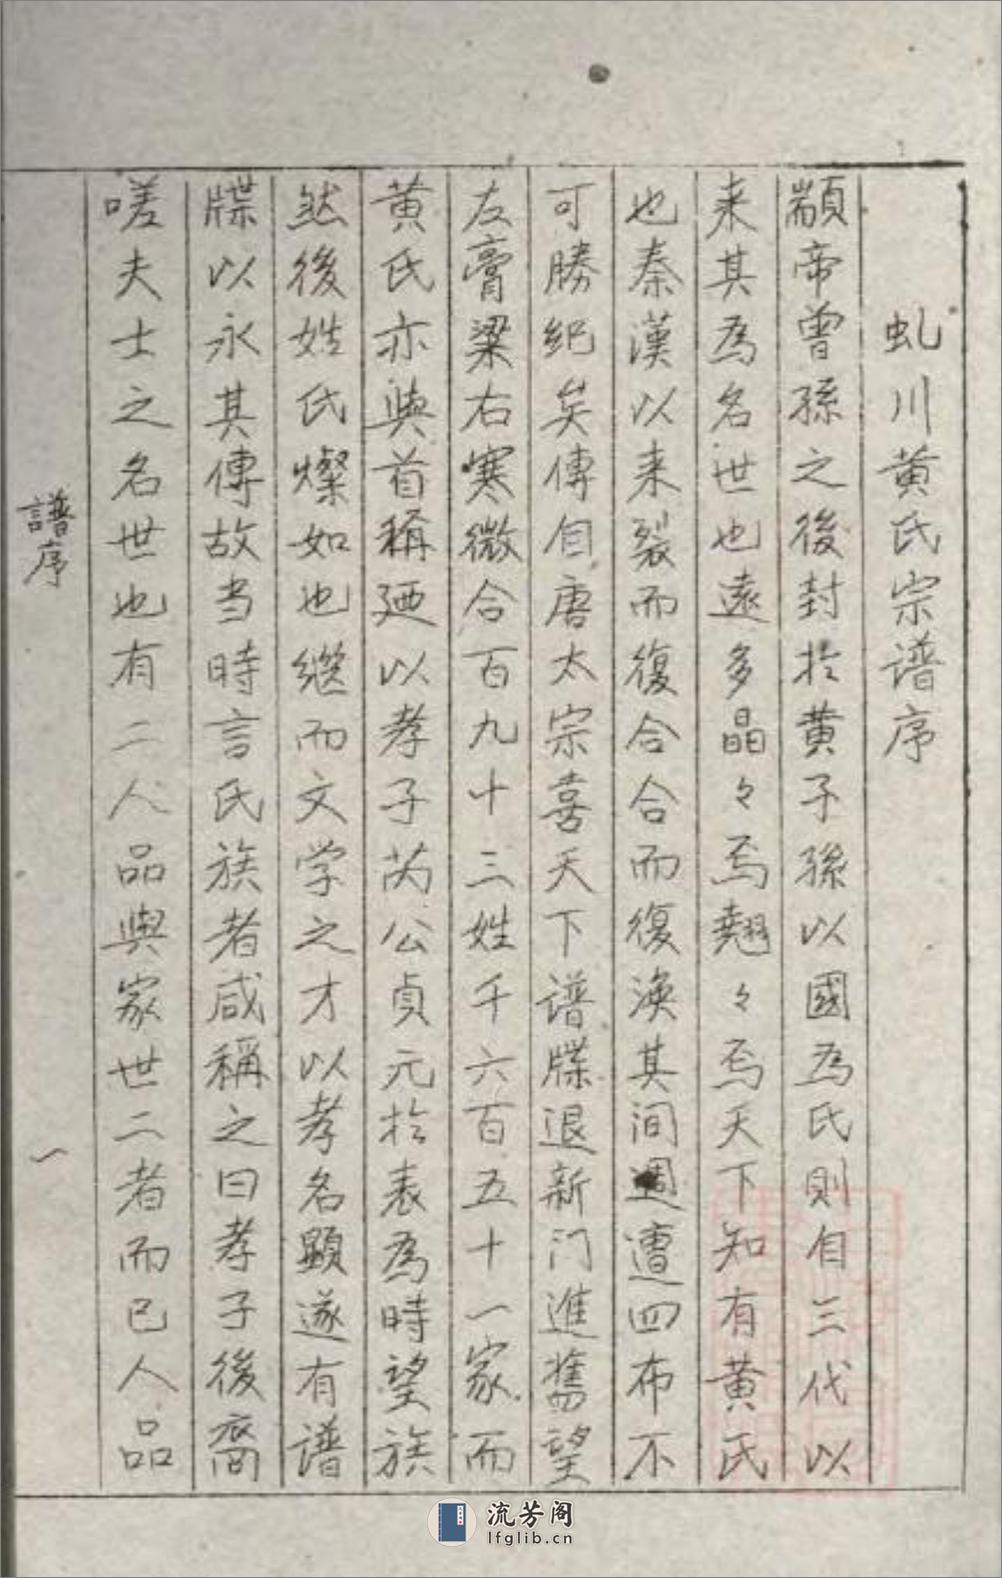 虬川黄氏宗谱序
顓帝曾孫之後封扵黄子孫以國為氏則自三代以
来其為名世也遠多晶々焉翹々焉天下知有黄氏
也秦漢以来裂而復合合而復渙其间週遭四布不
可勝紀矣傳自唐太宗喜天下谱牒退新门進舊望
左膏粱右寒微合百九十三姓千六百五十一家而
黄氏亦與首稱廼以孝子芮公貞元扵表為時望族
然後姓氏燦如也继而文学之才以孝名顕遂有谱
牒以永其傳故当時言氏族者咸稱之曰孝子後裔
嗟夫士之名世也有二人品與家世二者而已人品
譜序
一
流芳阁
lfglib.cn